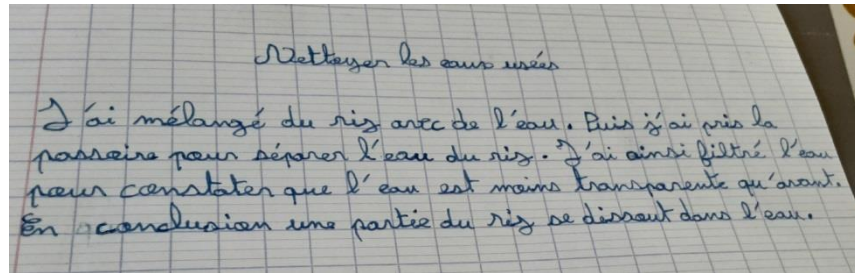 Nettoyer les eaux usées
J'ai mélangé du riz avec de l'eau. Puis j'ai pris la
passoire pour séparer l'eau du riz. J'ai ainsi filtré l'eau
pour constater que l'eau est moins transparente qu'avant.
En conclusion une partie du riz se dissout dans l'eau.